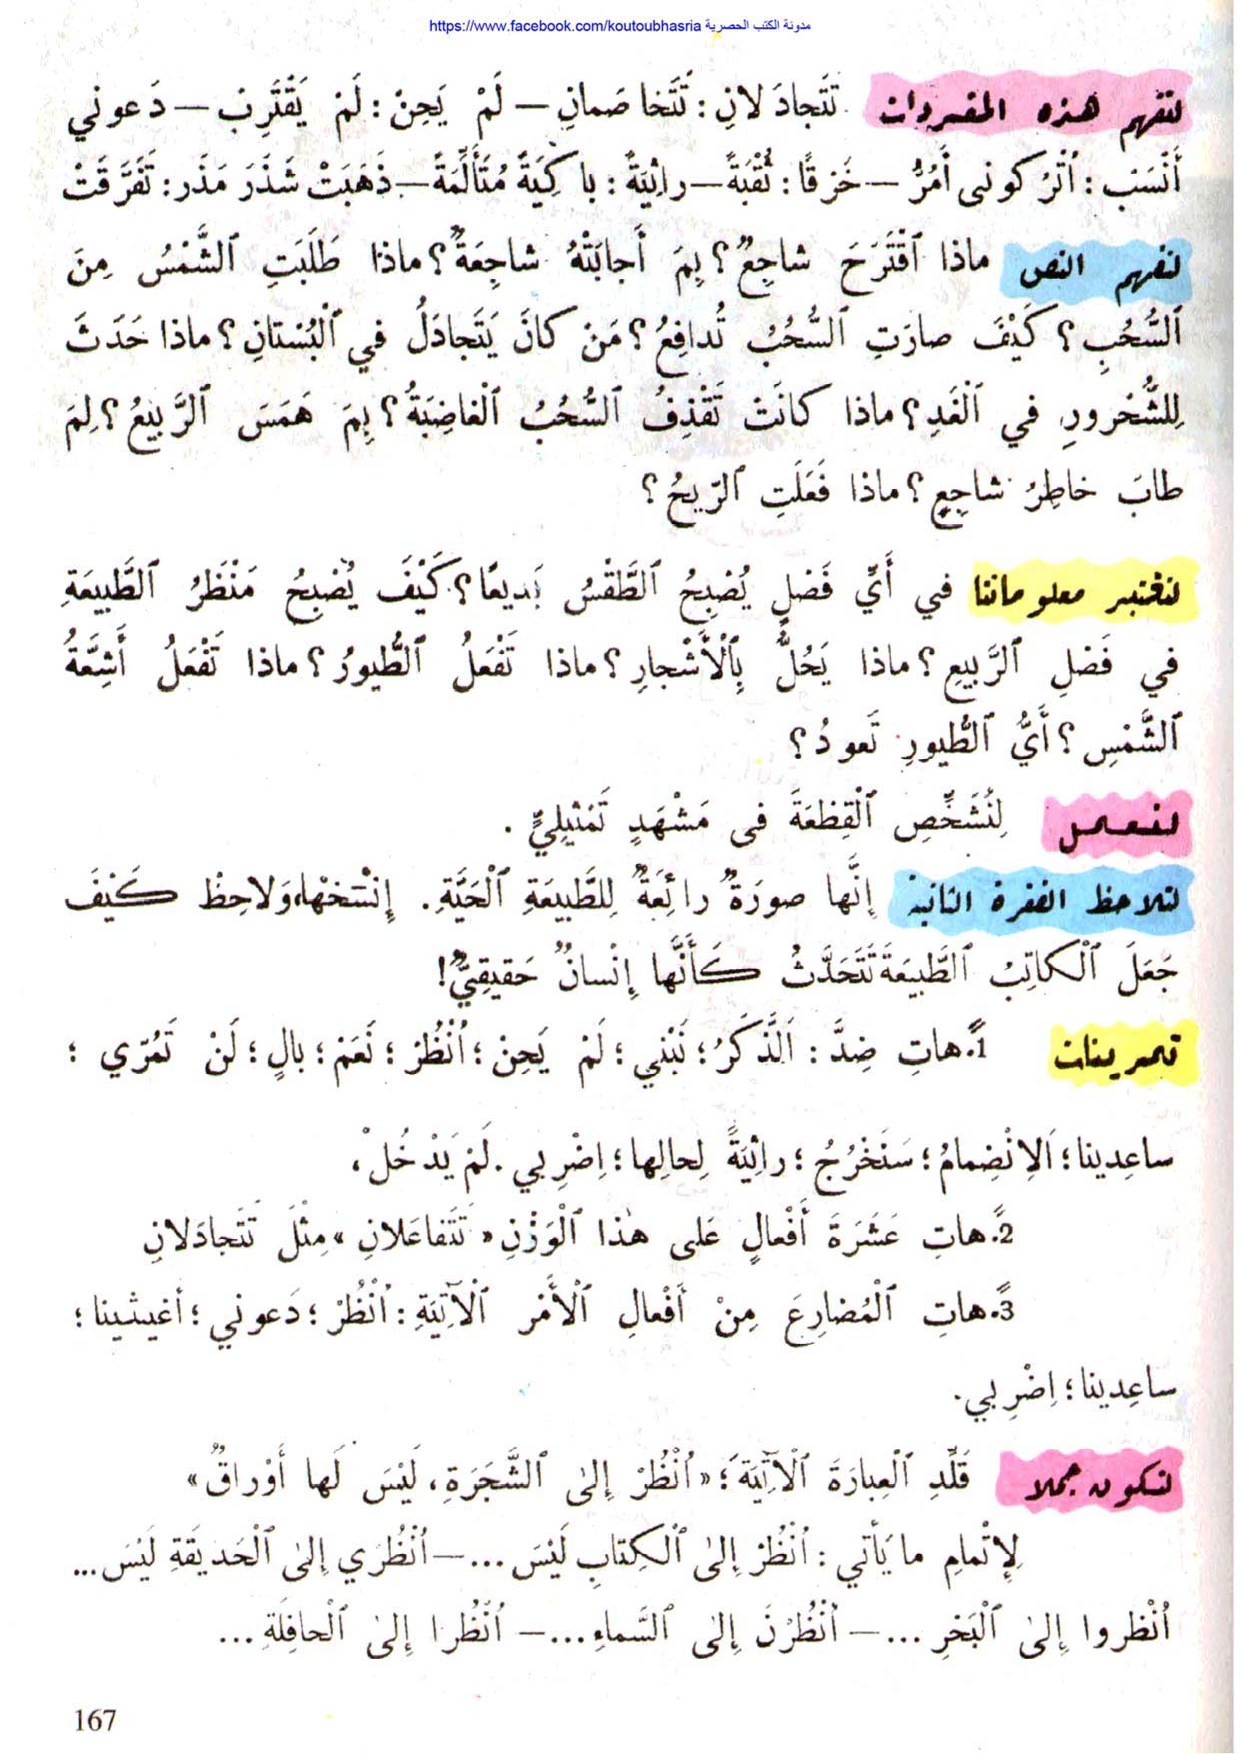 مدونة الكتب الحصرية https://www.facebook.com/koutoubhasria
لنتفهم هذه المفردات تَتَجادَلانِ : تَتَخاصَمانِ — لَمْ يَحِنْ : لَمْ يَقْتَرِبْ — دَعوني
أَنْسَبْ : اُتْرُكوني أَمُرُّ — خَرْقًا : ثُقْبَةً — راثِيَةً : باكِيَةً مُتَأَلِّمَةً — ذَهَبَتْ شَذَرَ مَذَر : تَفَرَّقَتْ
لنفهم النص ماذا ٱقْتَرَحَ شاجِعٌ ؟ بِمَ أَجابَتْهُ شاجِعَةٌ ؟ ماذا طَلَبَتِ ٱلشَّمْسُ مِنَ
ٱلسُّحُبِ ؟ كَيْفَ صارَتِ ٱلسُّحُبُ تُدافِعُ ؟ مَن كانَ يَتَجادَلُ في ٱلْبُسْتانِ ؟ ماذا حَدَثَ
لِلشُّحْرورِ في ٱلْغَدِ ؟ ماذا كانَتْ تَقْذِفُ ٱلسُّحُبُ ٱلْغاضِبَةُ ؟ بِمَ هَمَسَ ٱلرَّبيعُ ؟ لِمَ
طابَ خاطِرُ شاجِعٍ ؟ ماذا فَعَلَتِ ٱلرّيحُ ؟
لنختبر معلوماتنا في أَيِّ فَصْلٍ يُصْبِحُ ٱلطَّقْسُ بَديعًا ؟ كَيْفَ يُصْبِحُ مَنْظَرُ ٱلطَّبيعَةِ
في فَصْلِ ٱلرَّبيعِ ؟ ماذا يَحُلُّ بِٱلْأَشْجارِ ؟ ماذا تَفْعَلُ ٱلطُّيورُ ؟ ماذا تَفْعَلُ أَشِعَّةُ
ٱلشَّمْسِ ؟ أَيُّ ٱلطُّيورِ تَعودُ ؟
لنعمل لِنُشَخِّصِ ٱلْقِطْعَةَ في مَشْهَدٍ تَمْثيلِيٍّ .
لنلاحظ الفقرة الثانية إِنَّها صورَةٌ رائِعَةٌ لِلطَّبيعَةِ ٱلْحَيَّةِ. إِنْسَخْها، وَلاحِظْ كَيْفَ
جَعَلَ ٱلْكاتِبُ ٱلطَّبيعَةَ تَتَحَدَّثُ كَأَنَّها إِنْسانٌ حَقيقِيٌّ!
تمرينات 1ً. هاتِ ضِدَّ : اَلذَّكَرُ ؛ نَبْني ؛ لَمْ يَحِنْ ؛ اُنْظُرْ ؛ نَعَمْ ؛ بالٍ ؛ لَنْ تَمُرّي ؛
ساعِدينا ؛ اَلاِنْضِمامُ ؛ سَنَخْرُجُ ؛ راثِيَةً لِحالِها ؛ اِضْرِبي . لَمْ يَدْخُلْ،
2ً. هاتِ عَشَرَةَ أَفْعالٍ عَلى هٰذا ٱلْوَزْنِ « تَتَفاعَلانِ » مِثْلَ تَتَجادَلانِ
3ً. هاتِ ٱلْمُضارِعَ مِنْ أَفْعالِ ٱلْأَمْرِ ٱلْآتِيَةِ : اُنْظُرْ ؛ دَعوني ؛ أغيثينا ؛
ساعِدينا ؛ اِضْرِبي.
لنكون جملا قَلِّدِ ٱلْعِبارَةَ ٱلْآتِيَةَ ؛ « اُنْظُرْ إِلىٰ ٱلشَّجَرَةِ ، لَيْسَ لَها أَوْراقٌ »
لِإِتْمامِ ما يَأْتي : اُنْظُرْ إِلىٰ ٱلْكِتابِ لَيْسَ ... — اُنْظُري إِلىٰ ٱلْحَديقَةِ لَيْسَ ...
اُنْظروا إِلىٰ ٱلْبَحْرِ ... — اُنْظُرْنَ إِلىٰ ٱلسَّماءِ ... — اُنْظُرا إِلىٰ ٱلْحافِلَةِ ...
167